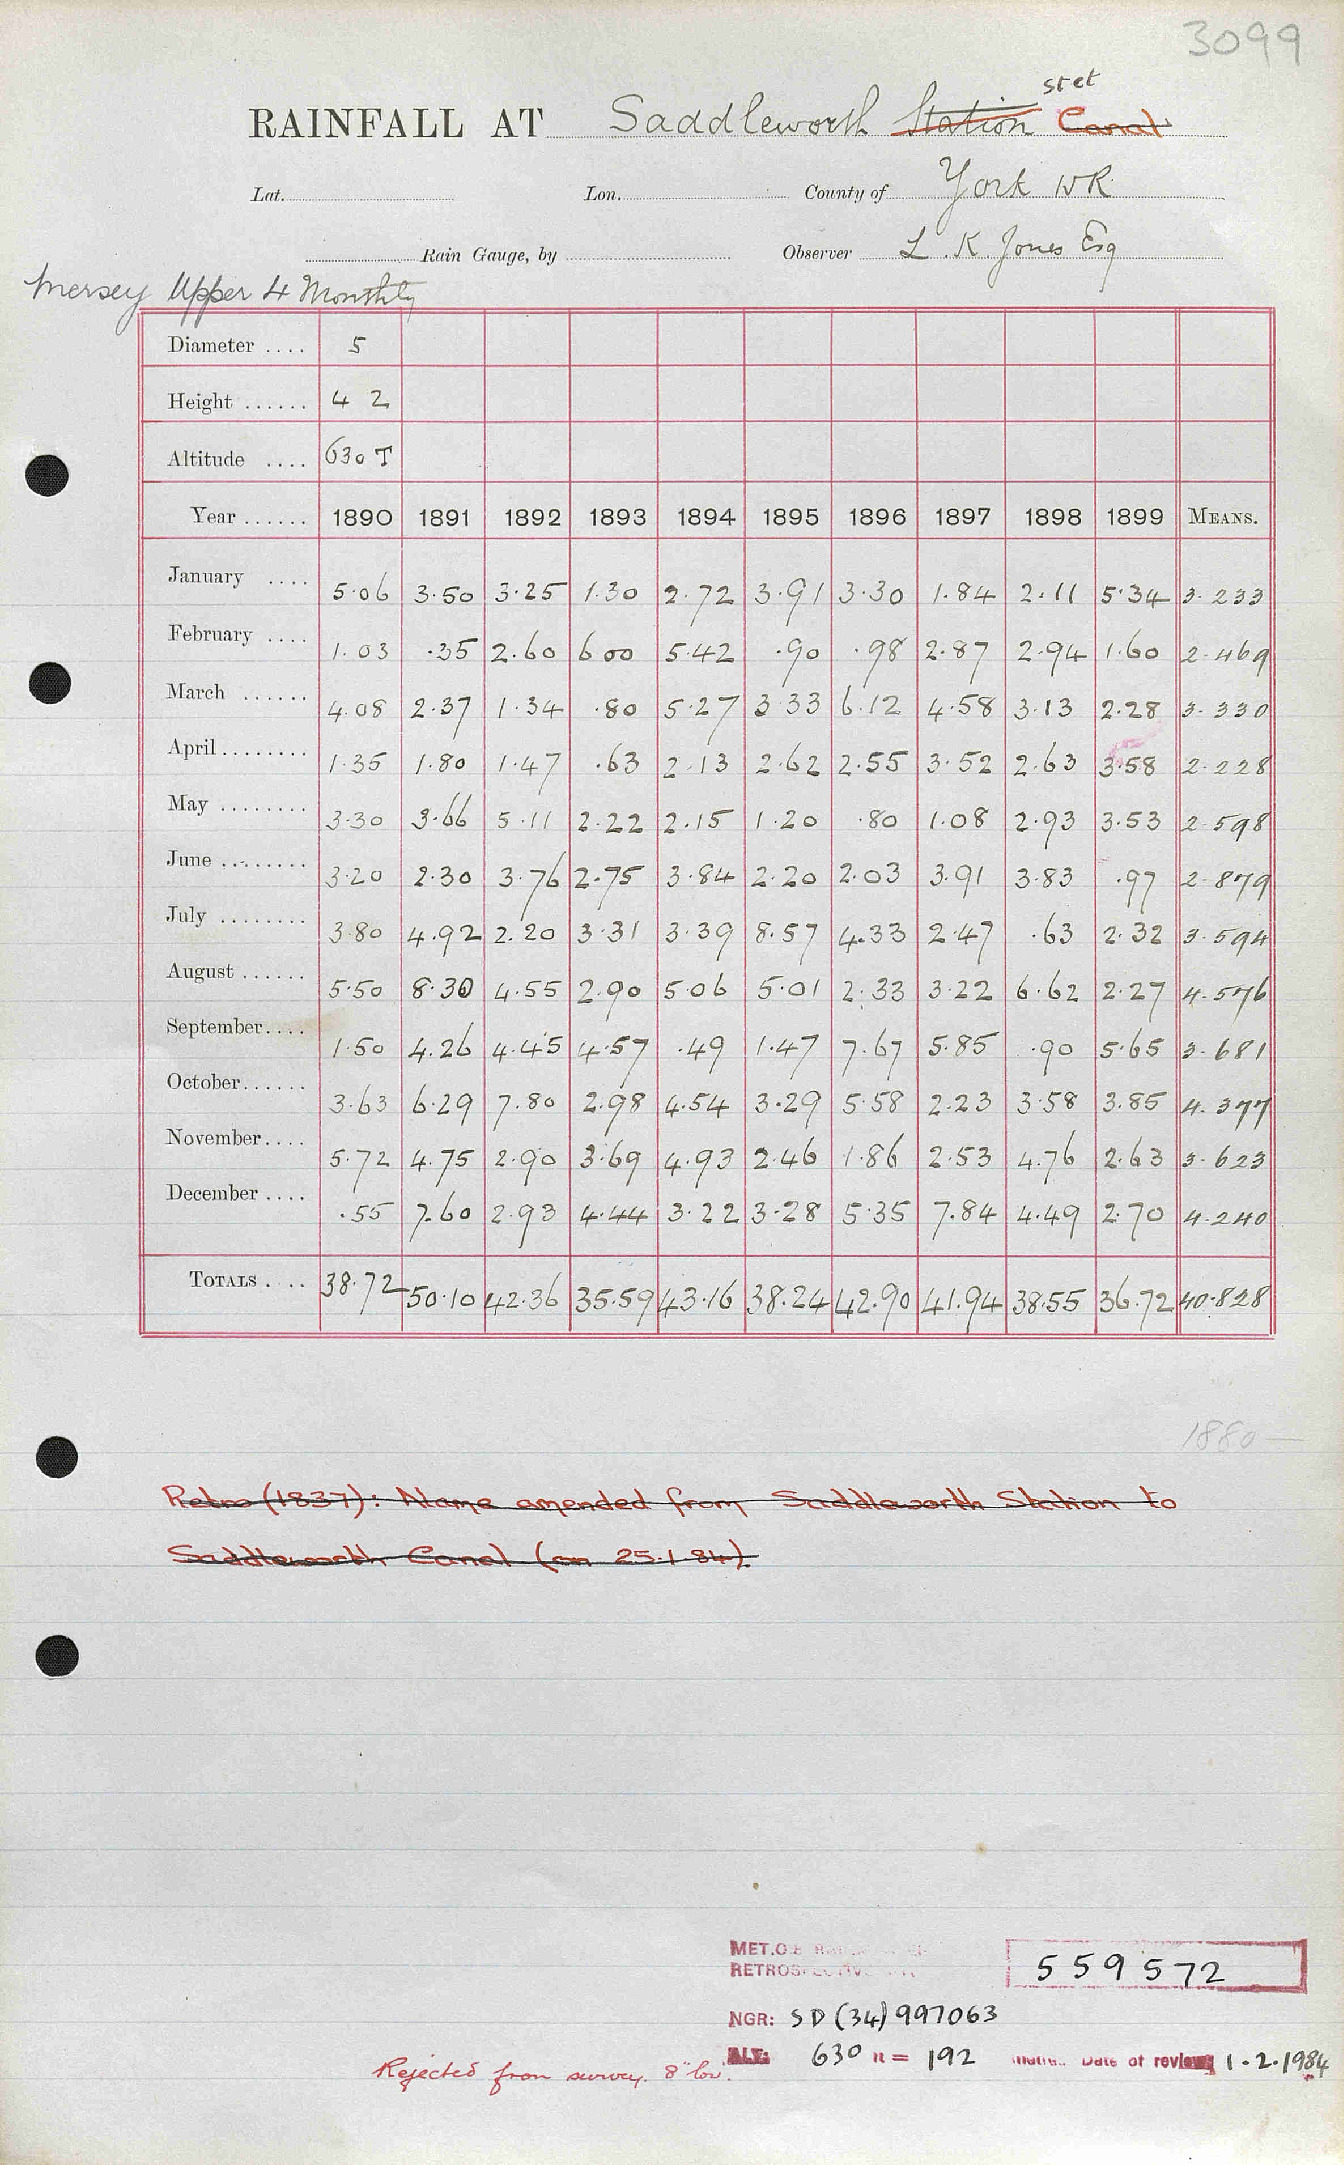 3099
stet
RAINFALL AT Saddleworth Station Canal
Lat. Lon. County of York WR
Rain Gauge, by Observer L. K. Jones Esq
Mersey Upper 4 Monthly
Diameter .... 5
Height ...... 4 2
Altitude .... 630 T
Year ...... 1890 1891 1892 1893 1894 1895 1896 1897 1898 1899 MEANS.
January .... 5.06 3.50 3.25 1.30 2.72 3.91 3.30 1.84 2.11 5.34 3.233
February .... 1.03 .35 2.60 6 00 5.42 .90 .98 2.87 2.94 1.60 2.469
March ...... 4.08 2.37 1.34 .80 5.27 3.33 6.12 4.58 3.13 2.28 3.330
April ........ 1.35 1.80 1.47 .63 2.13 2.62 2.55 3.52 2.63 3.58 2.228
May ........ 3.30 3.66 5.11 2.22 2.15 1.20 .80 1.08 2.93 3.53 2.598
June ........ 3.20 2.30 3.76 2.75 3.84 2.20 2.03 3.91 3.83 .97 2.879
July ........ 3.80 4.92 2.20 3.31 3.39 8.57 4.33 2.47 .63 2.32 3.594
August ...... 5.50 8.30 4.55 2.90 5.06 5.01 2.33 3.22 6.62 2.27 4.576
September.... 1.50 4.26 4.45 4.57 .49 1.47 7.67 5.85 .90 5.65 3.681
October...... 3.63 6.29 7.80 2.98 4.54 3.29 5.58 2.23 3.58 3.85 4.377
November.... 5.72 4.75 2.90 3.69 4.93 2.46 1.86 2.53 4.76 2.63 3.623
December .... .55 7.60 2.93 4.44 3.22 3.28 5.35 7.84 4.49 2.70 4.240
TOTALS .... 38.72 50.10 42.36 35.59 43.16 38.24 42.90 41.94 38.55 36.72 40.828
1880 —
Retro (1837): Name amended from Saddleworth Station to
Saddleworth Canal (on 25.1.84).
MET.O.8
RETROSPECTIVE
559572
NGR: SD (34) 997063
ALT: 630 ft = 192 Date of review 1.2.1984
Rejected from survey. 8" low.